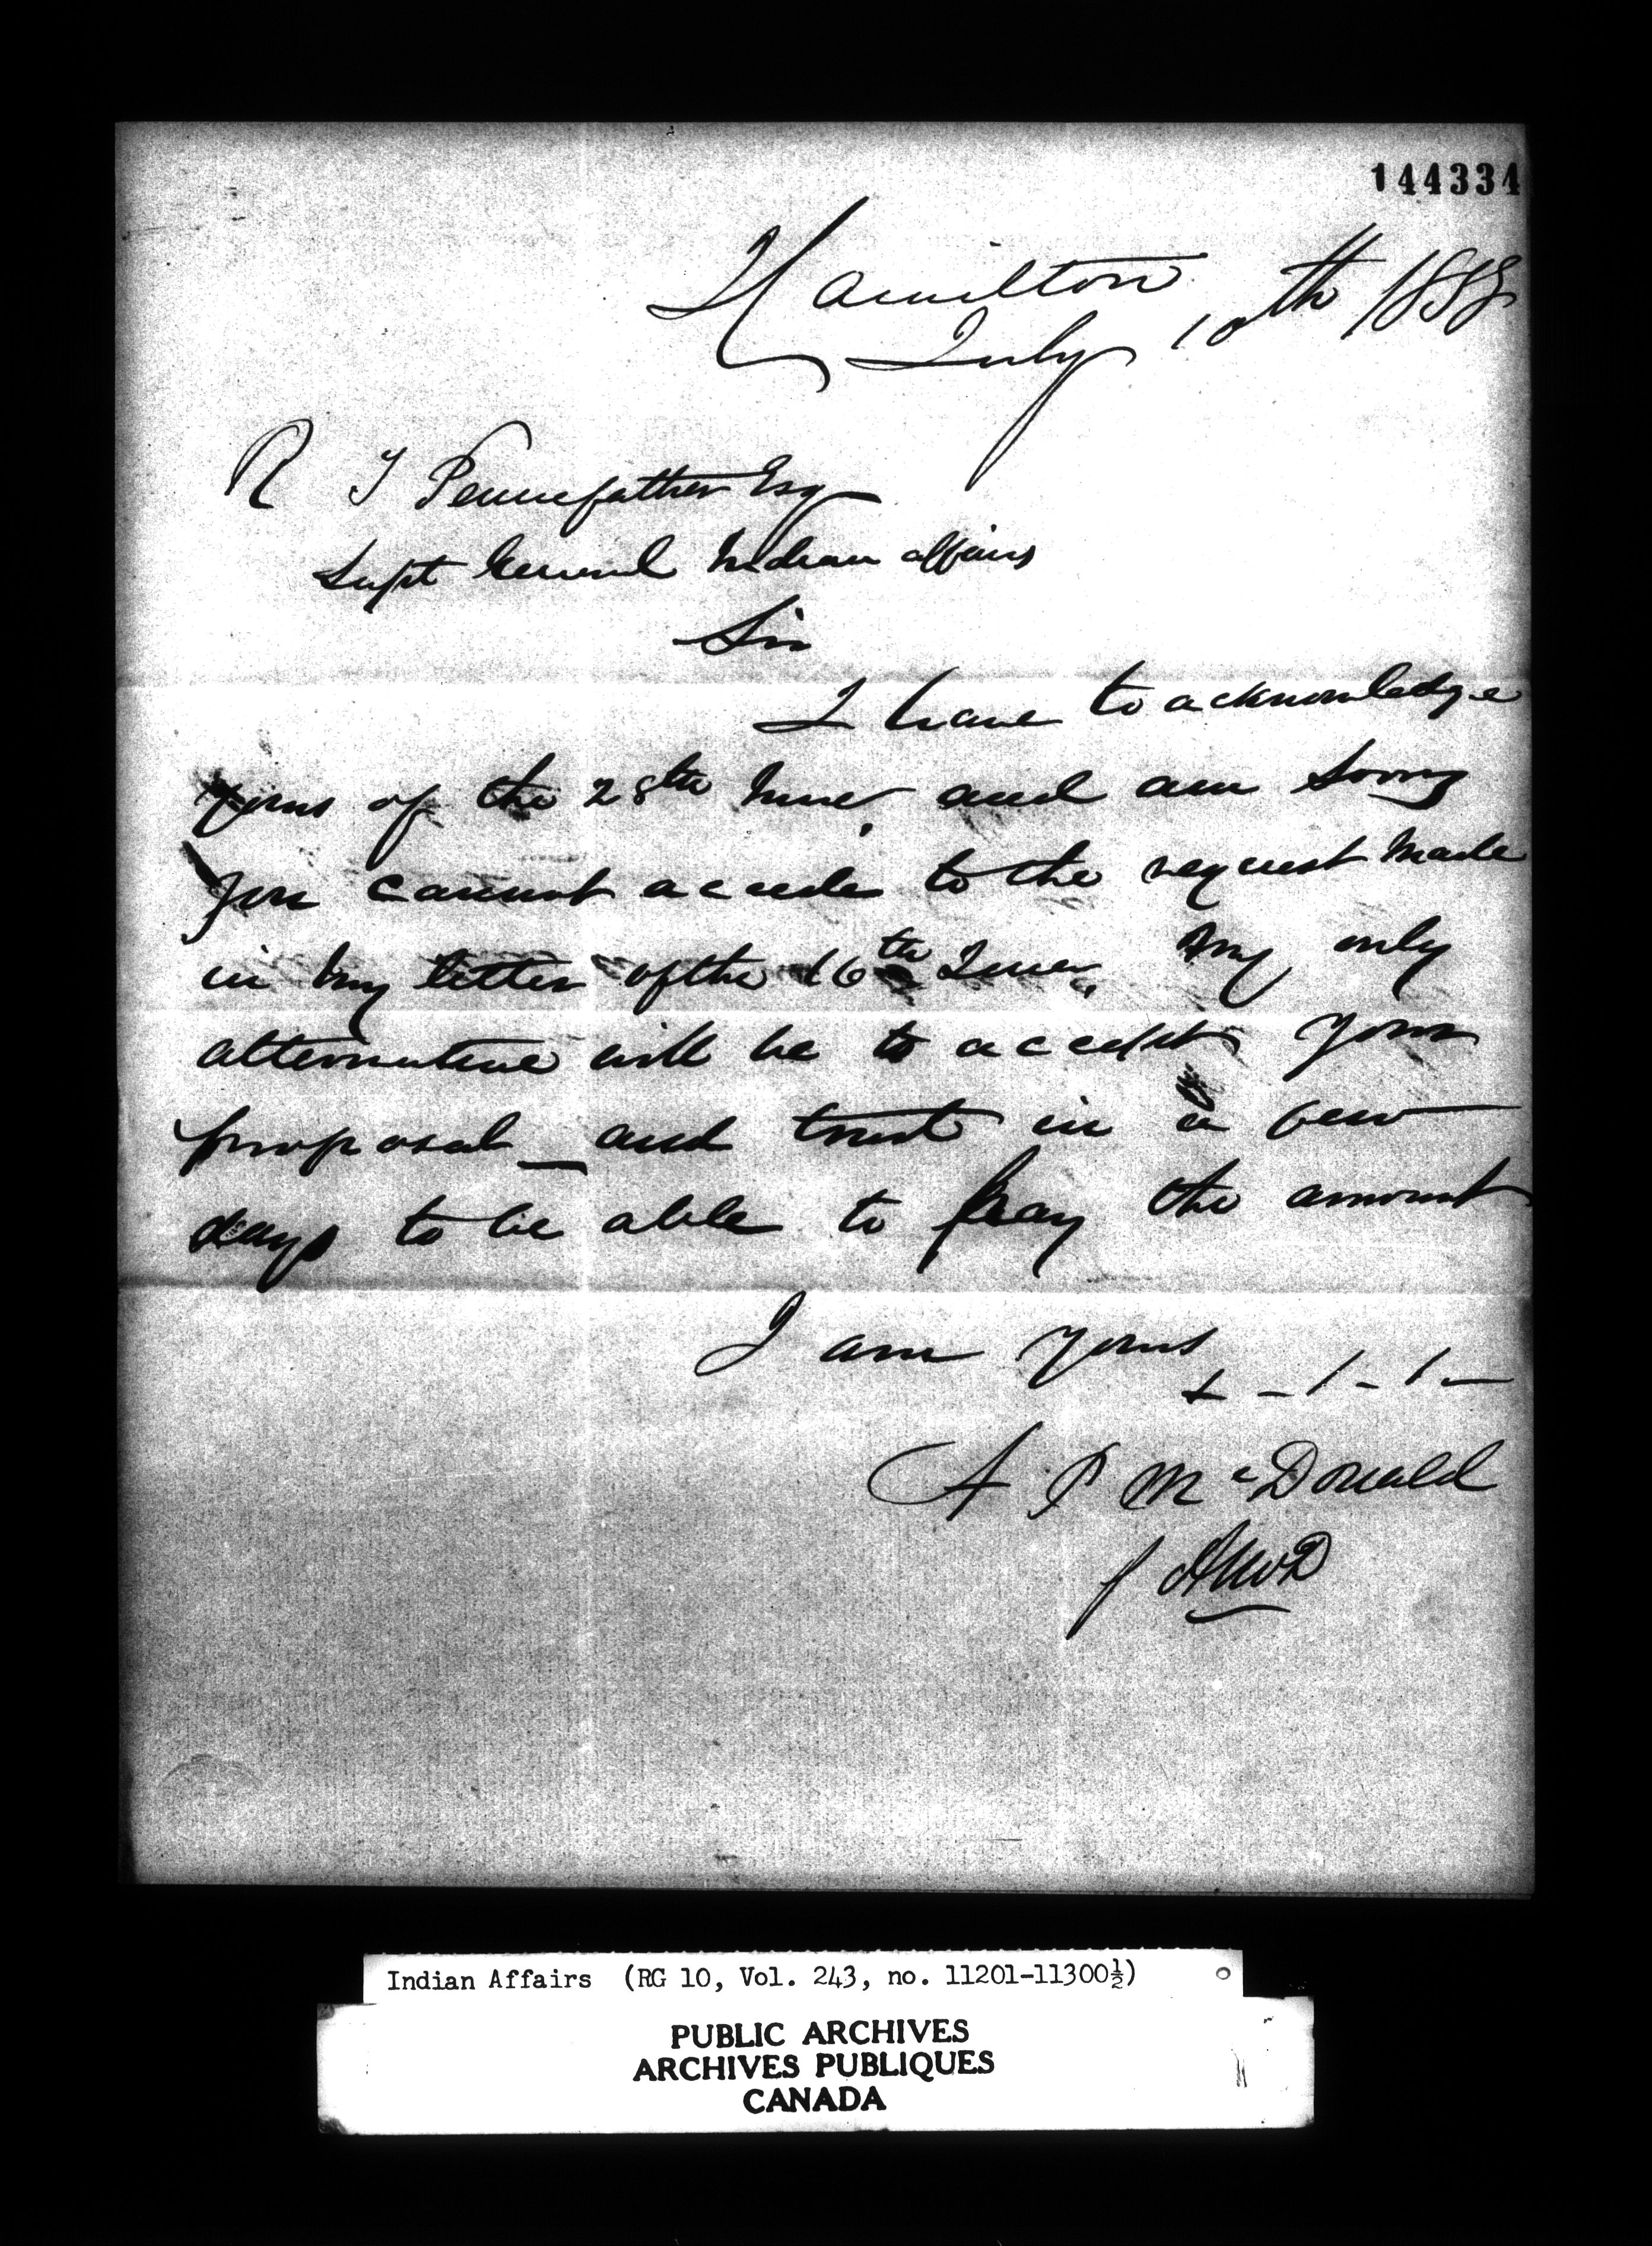 144334
Hamilton
July 10th 1858
R T Pennefather Esq
Supt General Indian affairs
Sir
I have to acknowledge
yours of the 28th June, and am sorry
you cannot accede to the request made
in my letter of the 16th June, My only
alternative will be to accept your
proposal _ and trust in a few
days to be able to pay the amount
I am yours
& - / - / -
A P McDonald
Indian Affairs (RG 10, Vol. 243, no. 11201-11300½)
PUBLIC ARCHIVES
ARCHIVES PUBLIQUES
CANADA